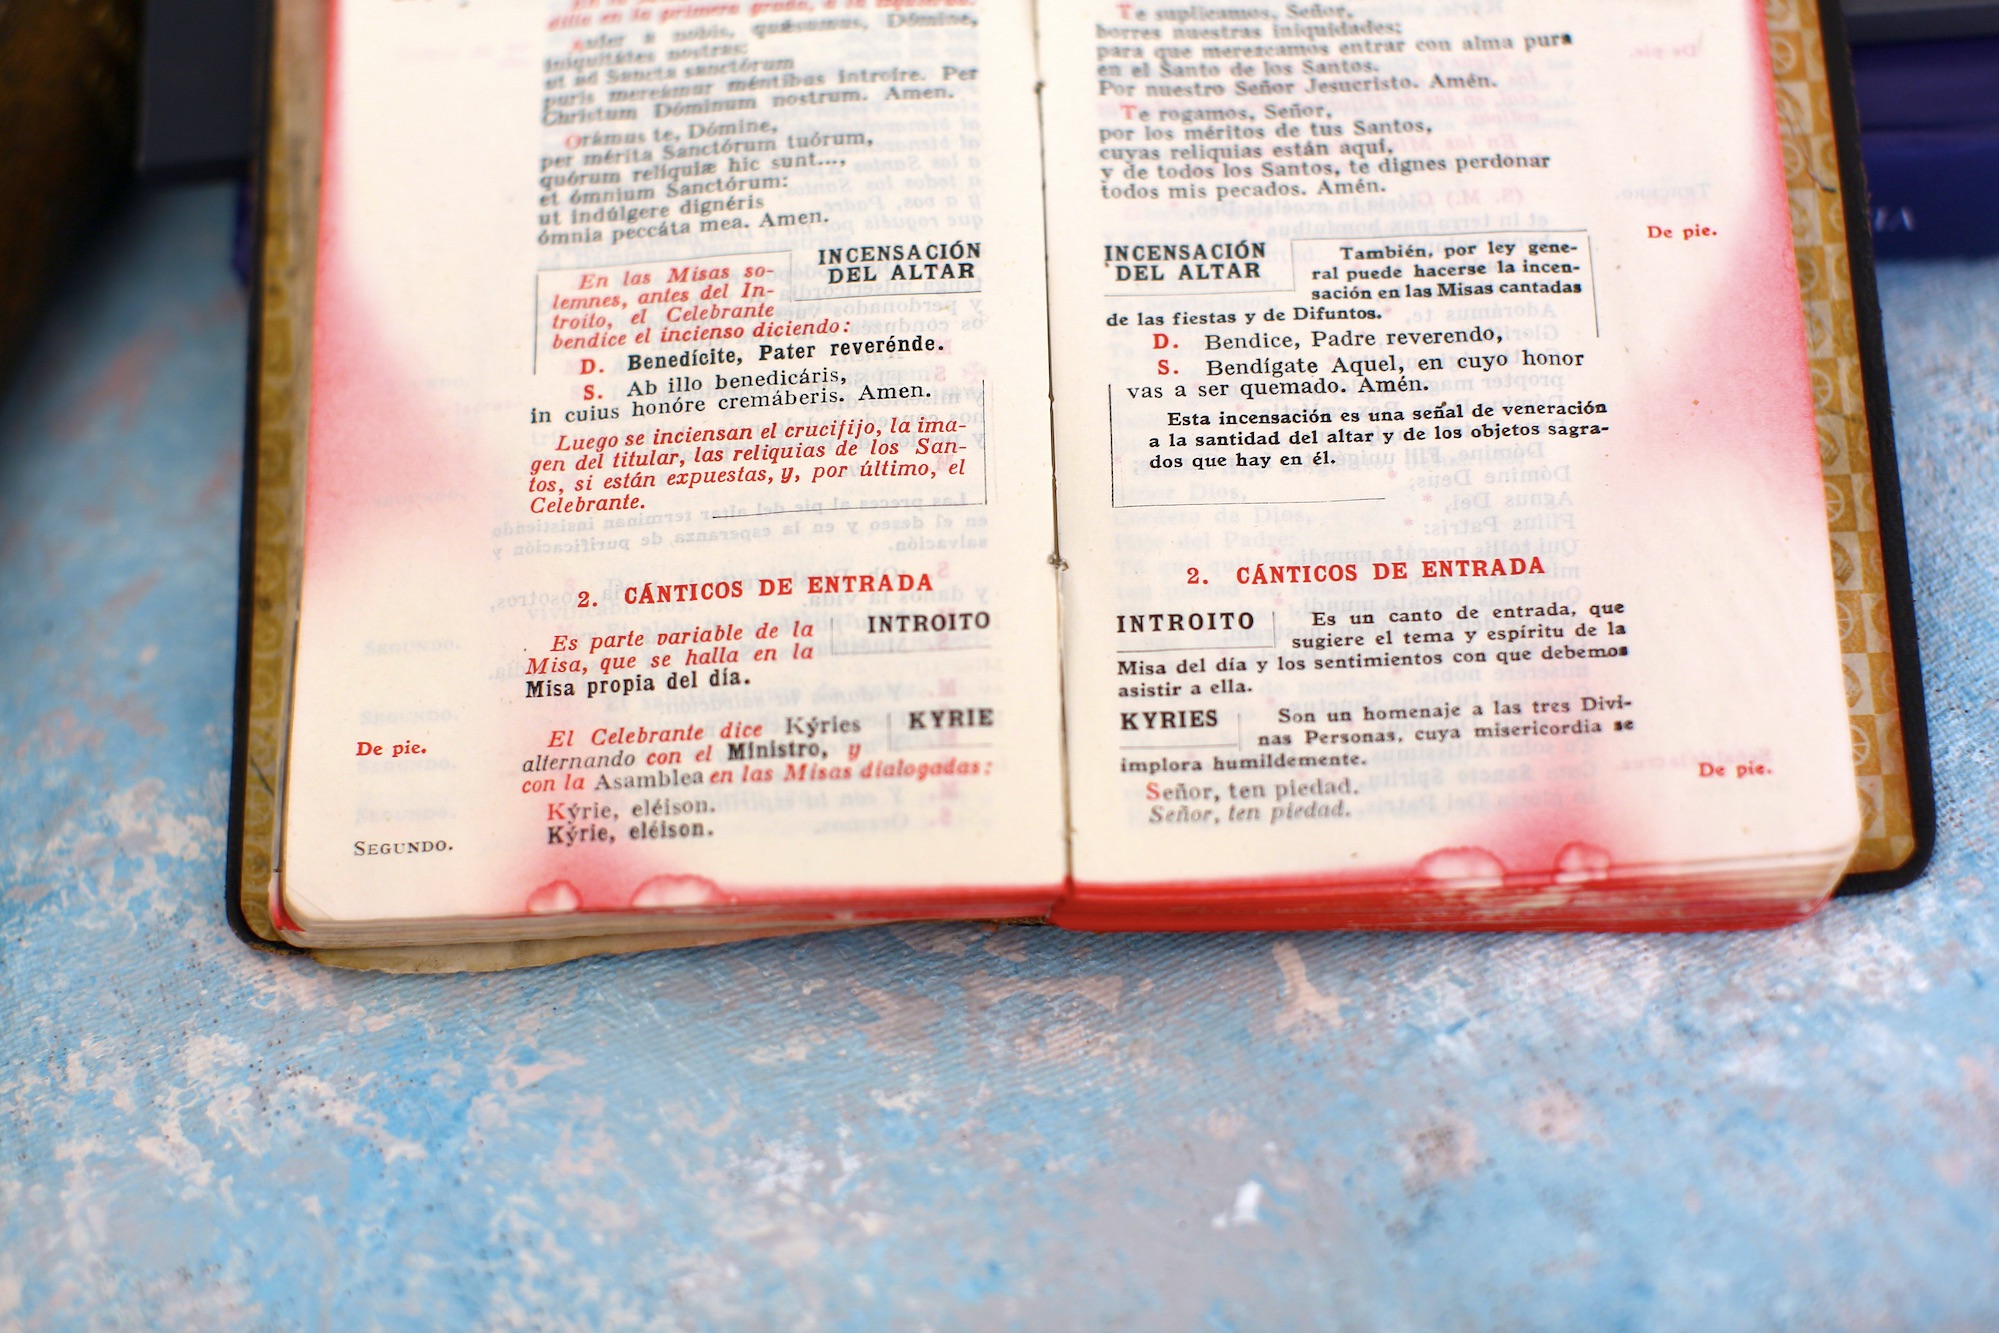 dilla en la primera grada, a la izquierda.
Aufer a nobis, quǽsumus, Dómine,
iniquitátes nostras:
ut ad Sancta sanctórum
puris mereámur méntibus introíre. Per
Christum Dóminum nostrum. Amen.
Orámus te, Dómine,
per mérita Sanctórum tuórum,
quórum relíquiæ hic sunt...,
et ómnium Sanctórum:
ut indúlgere dignéris
ómnia peccáta mea. Amen.
INCENSACIÓN
DEL ALTAR
En las Misas so-
lemnes, antes del In-
troito, el Celebrante
bendice el incienso diciendo:
D. Benedícite, Pater reverénde.
S. Ab illo benedicáris,
in cuius honóre cremáberis. Amen.
Luego se inciensan el crucifijo, la ima-
gen del titular, las reliquias de los San-
tos, si están expuestas, y, por último, el
Celebrante.
2. CÁNTICOS DE ENTRADA
INTROITO
Es parte variable de la
Misa, que se halla en la
Misa propia del día.
KYRIE
El Celebrante dice Kýries
alternando con el Ministro, y
con la Asamblea en las Misas dialogadas:
De pie.
Kýrie, eléison.
Kýrie, eléison.
SEGUNDO.
Te suplicamos, Señor,
borres nuestras iniquidades;
para que merezcamos entrar con alma pura
en el Santo de los Santos.
Por nuestro Señor Jesucristo. Amén.
Te rogamos, Señor,
por los méritos de tus Santos,
cuyas reliquias están aquí,
y de todos los Santos, te dignes perdonar
todos mis pecados. Amén.
De pie.
INCENSACIÓN
DEL ALTAR
También, por ley gene-
ral puede hacerse la incen-
sación en las Misas cantadas
de las fiestas y de Difuntos.
D. Bendice, Padre reverendo,
S. Bendígate Aquel, en cuyo honor
vas a ser quemado. Amén.
Esta incensación es una señal de veneración
a la santidad del altar y de los objetos sagra-
dos que hay en él.
2. CÁNTICOS DE ENTRADA
INTROITO
Es un canto de entrada, que
sugiere el tema y espíritu de la
Misa del día y los sentimientos con que debemos
asistir a ella.
KYRIES
Son un homenaje a las tres Divi-
nas Personas, cuya misericordia se
implora humildemente.
De pie.
Señor, ten piedad.
Señor, ten piedad.